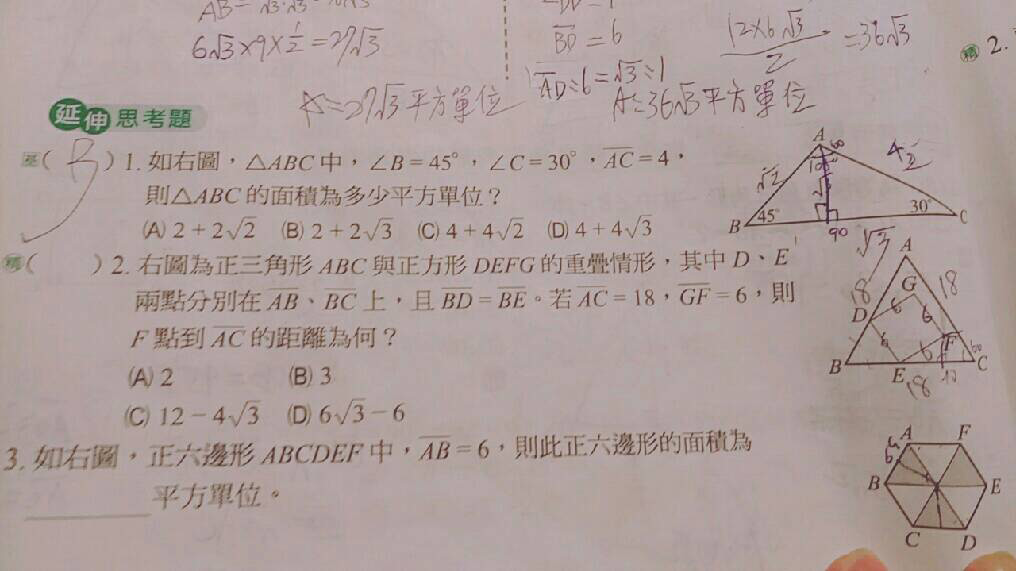 6√3×9×1/2=27√3
BD=6
AD:6=√3:1
12×6√3/2=36√3
A=27√3平方單位
A=36√3平方單位
2.
延伸思考題
(B)1. 如右圖,△ABC中,∠B=45°,∠C=30°,AC=4,
則△ABC的面積為多少平方單位?
(A) 2+2√2 (B) 2+2√3 (C) 4+4√2 (D) 4+4√3
A
B
45°
30°
C
90
( )2. 右圖為正三角形ABC與正方形DEFG的重疊情形,其中D、E
兩點分別在AB、BC上,且BD=BE。若AC=18,GF=6,則
F點到AC的距離為何?
(A) 2 (B) 3
(C) 12-4√3 (D) 6√3-6
A
18
18
G
D
6
6
6
6
F
B
E
C
18
3. 如右圖,正六邊形ABCDEF中,AB=6,則此正六邊形的面積為
平方單位。
A F
B E
C D